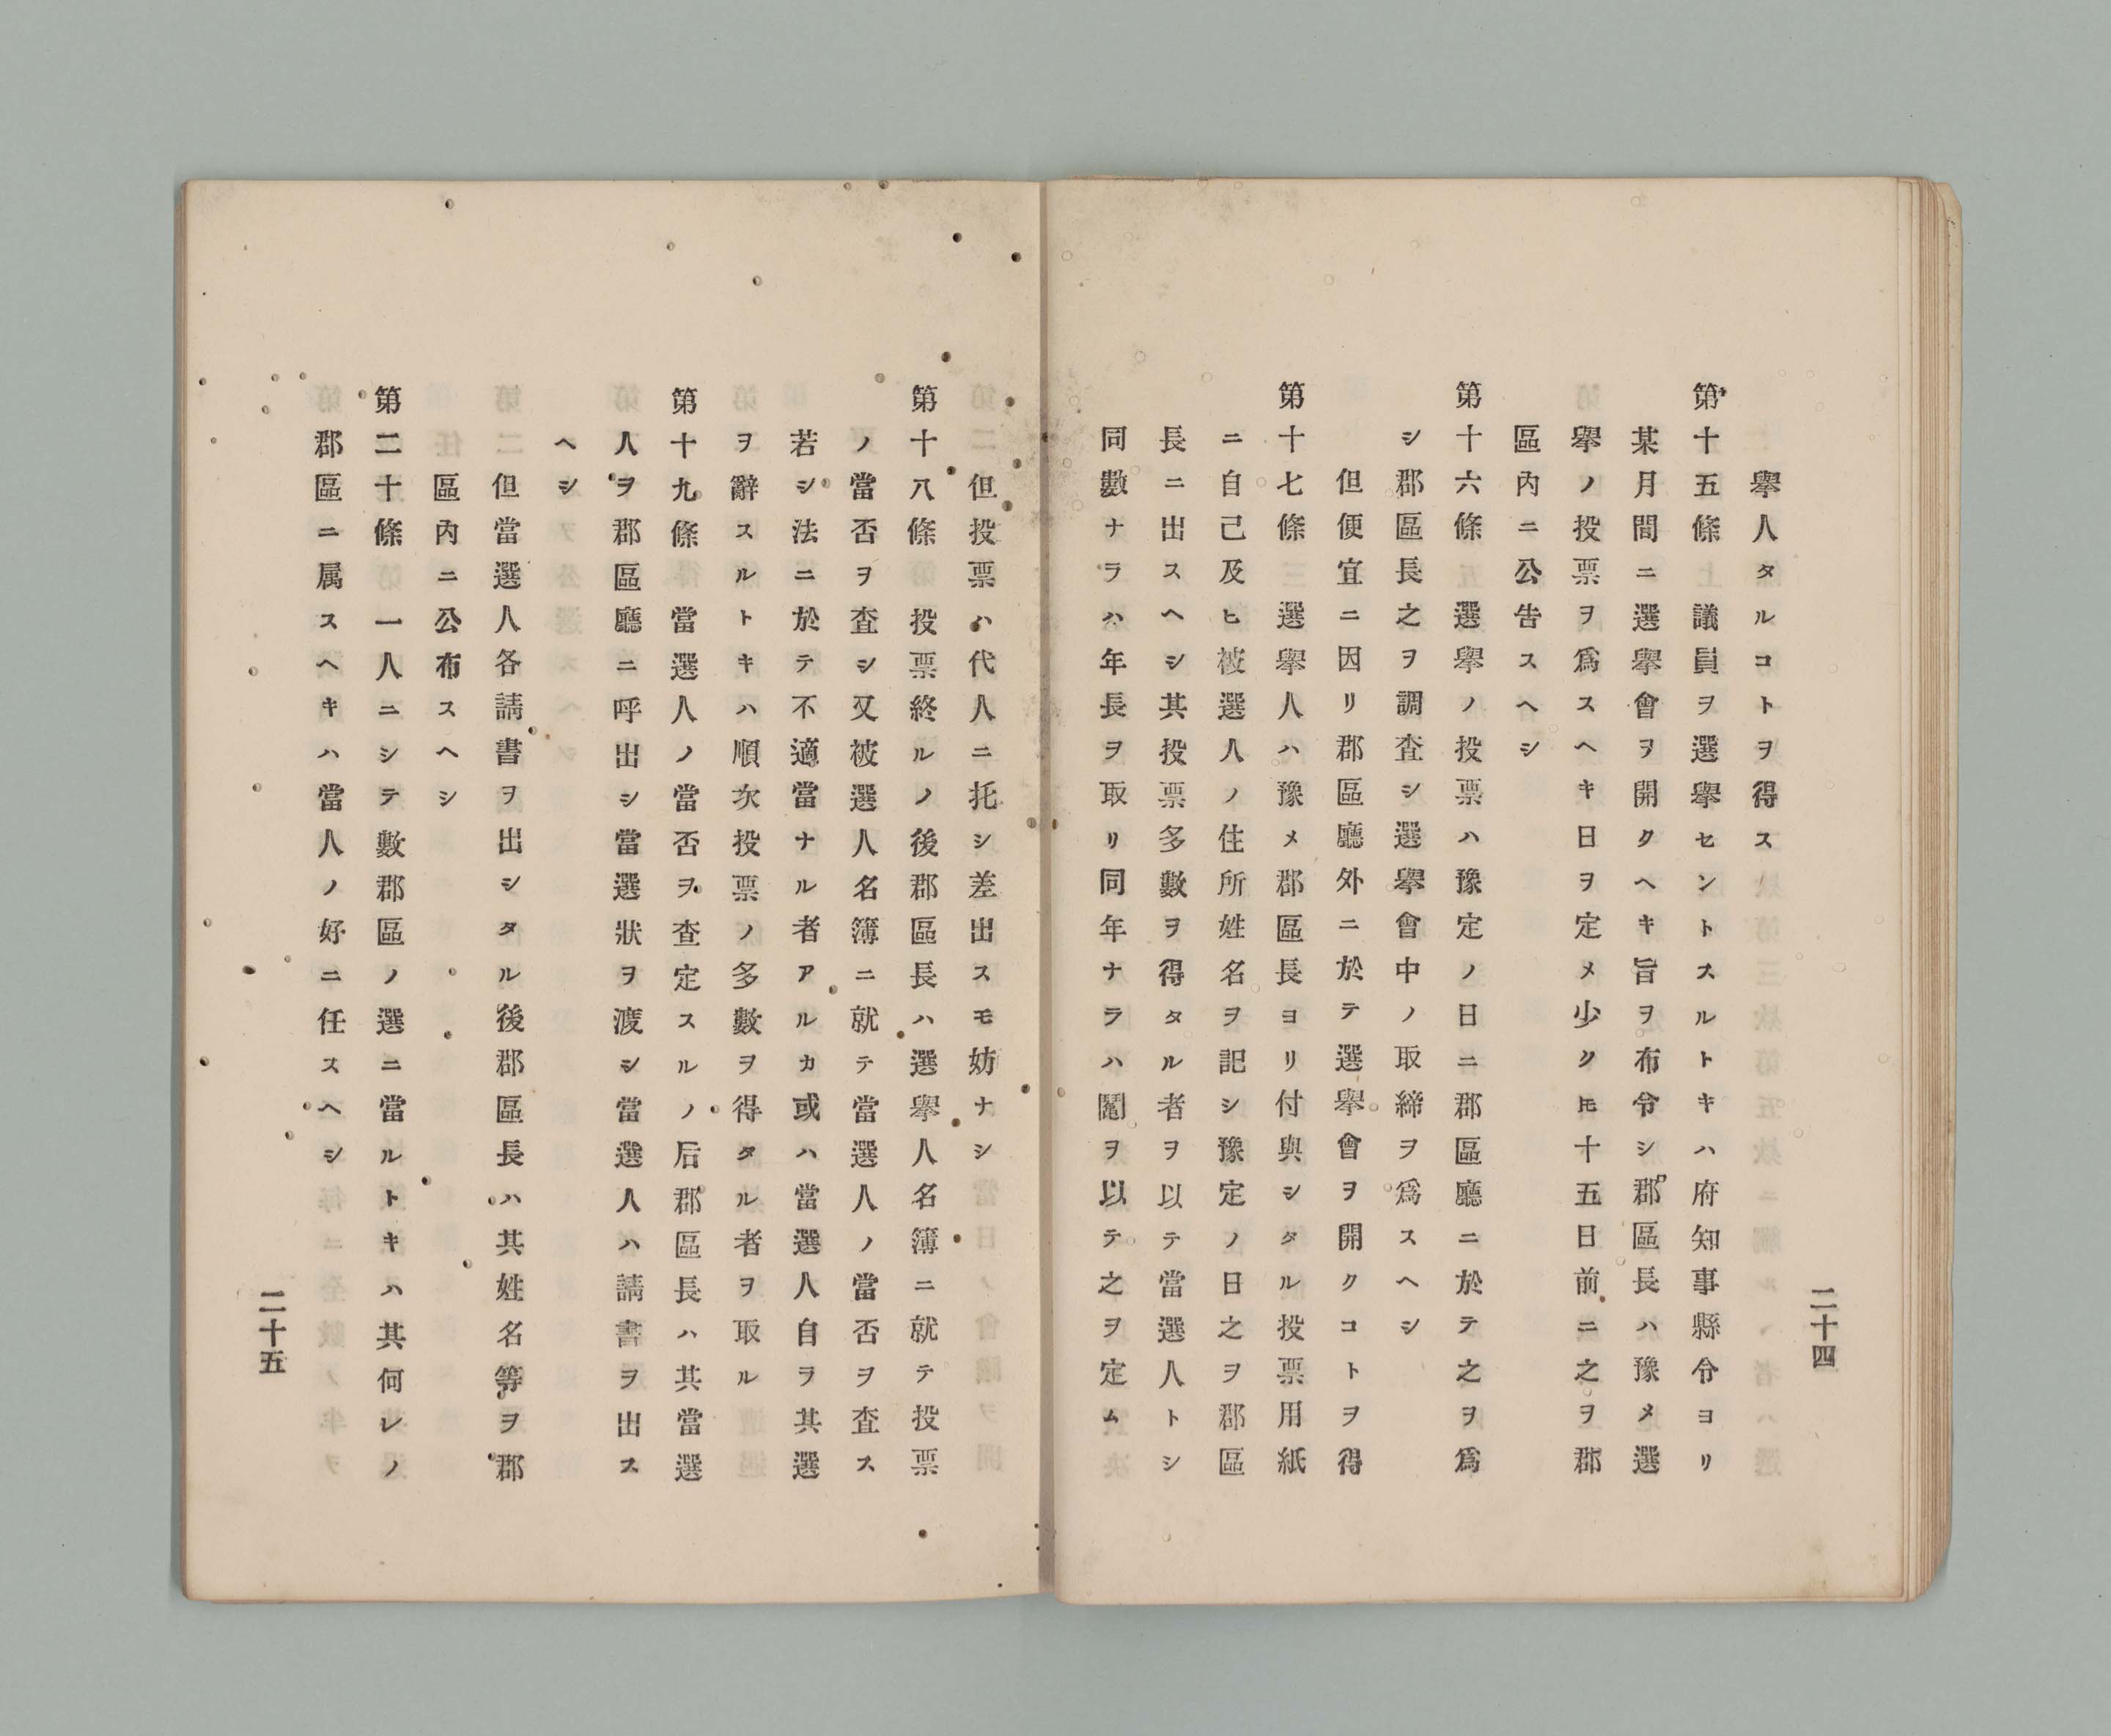 二十四
擧人タルコトヲ得ス
第十五條 議員ヲ選擧セントスルトキハ府知事縣令ヨリ
某月間ニ選擧會ヲ開クヘキ旨ヲ布令シ郡區長ハ豫メ選
擧ノ投票ヲ爲スヘキ日ヲ定メ少クモ十五日前ニ之ヲ郡
區內ニ公告スヘシ
第十六條 選擧ノ投票ハ豫定ノ日ニ郡區廳ニ於テ之ヲ爲
シ郡區長之ヲ調査シ選擧會中ノ取締ヲ爲スヘシ
但便宜ニ因リ郡區廳外ニ於テ選擧會ヲ開クコトヲ得
第十七條 選擧人ハ豫メ郡區長ヨリ付與シタル投票用紙
ニ自己及ヒ被選人ノ住所姓名ヲ記シ豫定ノ日之ヲ郡區
長ニ出スヘシ其投票多數ヲ得タル者ヲ以テ當選人トシ
同數ナラハ年長ヲ取リ同年ナラハ鬮ヲ以テ之ヲ定ム
但投票ハ代人ニ托シ差出スモ妨ナシ
第十八條 投票終ルノ後郡區長ハ選擧人名簿ニ就テ投票
ノ當否ヲ査シ又被選人名簿ニ就テ當選人ノ當否ヲ査ス
若シ法ニ於テ不適當ナル者アルカ或ハ當選人自ヲ其選
ヲ辭スルトキハ順次投票ノ多數ヲ得タル者ヲ取ル
第十九條 當選人ノ當否ヲ査定スルノ后郡區長ハ其當選
人ヲ郡區廳ニ呼出シ當選狀ヲ渡シ當選人ハ請書ヲ出ス
ヘシ
但當選人各請書ヲ出シタル後郡區長ハ其姓名等ヲ郡
區內ニ公布スヘシ
第二十條 一人ニシテ數郡區ノ選ニ當ルトキハ其何レノ
郡區ニ属スヘキハ當人ノ好ニ任スヘシ
二十五